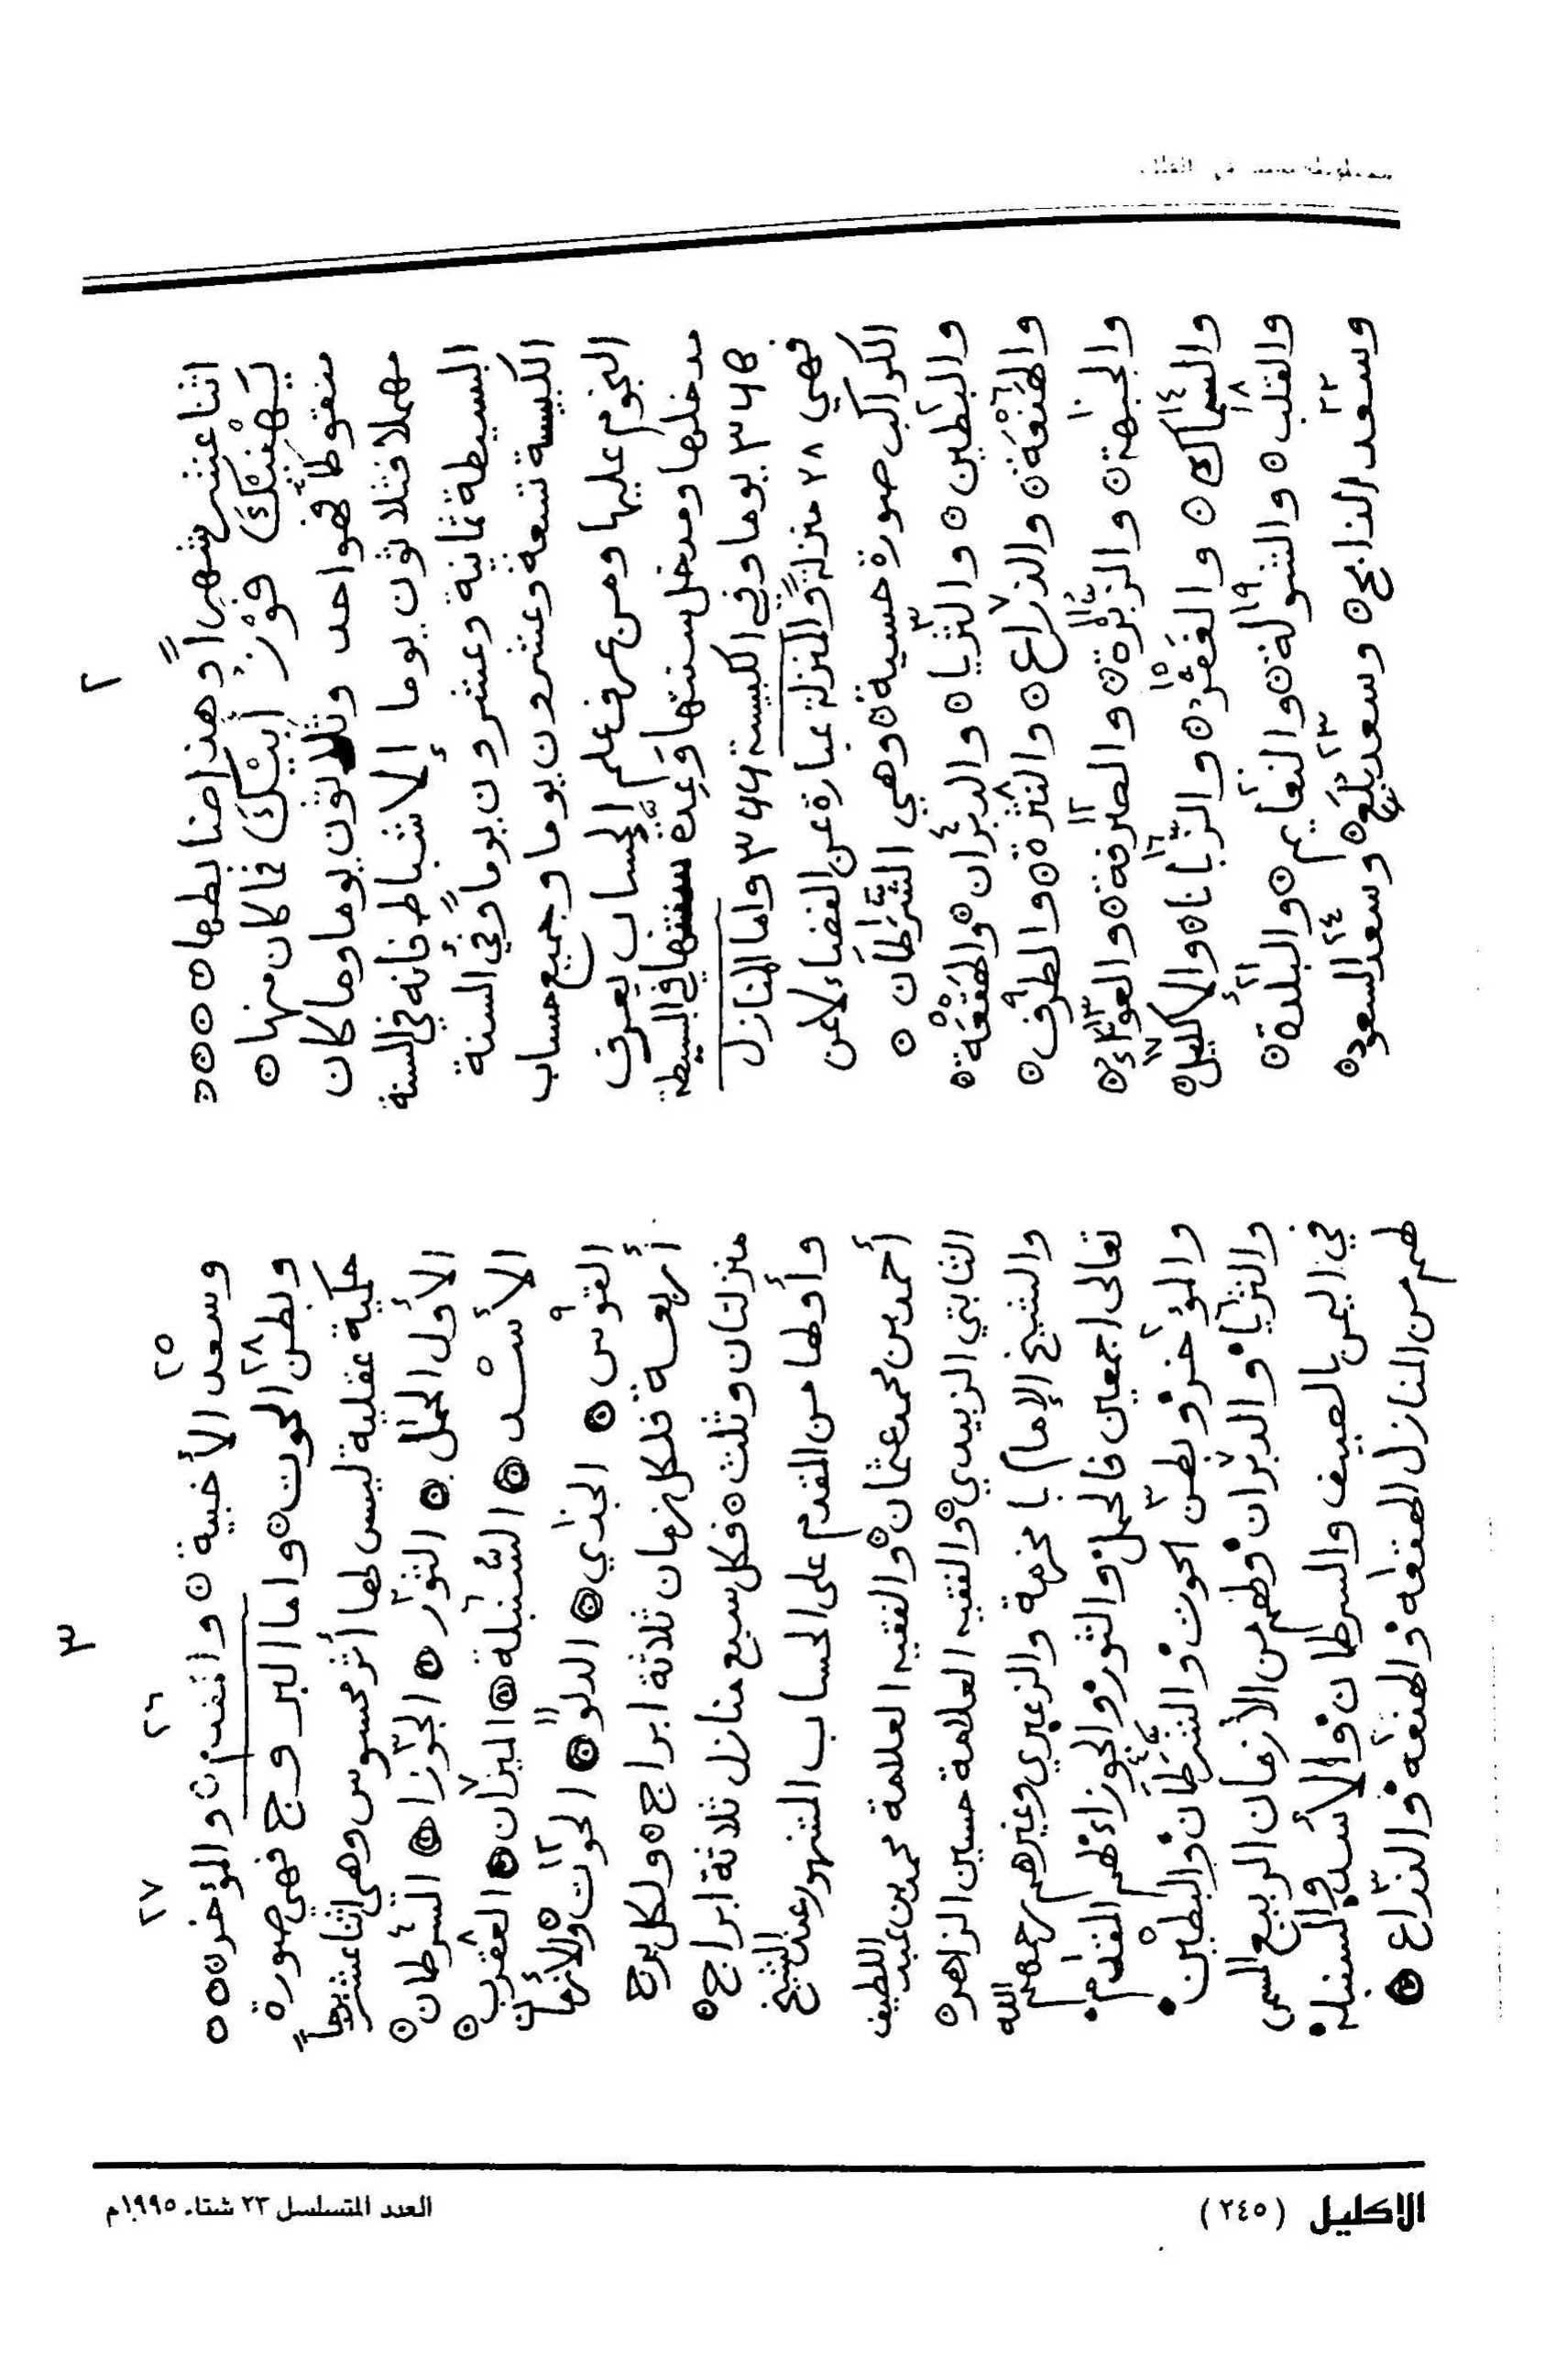 ٢
اثنا عشر شهراً وهذا ضابطها
يَهْنِيْكَ فوز أبيْكَ فما كان منها
منقوطاً فهو احد وثلاثون يوما وما كان
مهملا فثلاثون يوما إلا شباط فانه في السنة
البسيطة ثمانية وعشرون يوماً وفي السنة
الكبيسة تسعة وعشرون يوما وجميع حساب
النجوم عليها ومن عرف علم الحساب يعرف
مدخلها ومدخل سنتها وعدة في البسيطة
٣٦٥ يوما وفي الكبيسة ٣٦٦ واما المنازل
فهي ٢٨ منزلة والمنزلة عبارة عن الفضاء لا عن
الكواكب صورة حسية وهي الشرطان ١
والبطين ٢ والثريا ٣ والدبران ٤ والهقعة ٥
والهنعة ٦ والذراع ٧ والنثرة ٨ والطرف ٩
والجبهة ١٠ والزبرة ١١ والصرفة ١٢ والعواء ١٣
والسماك ١٤ والغفر ١٥ والزبانا ١٦ والاكليل ١٧
والقلب ١٨ والشولة ١٩ والنعايم ٢٠ والبلدة ٢١
وسعد الذابح ٢٢ وسعد بلع ٢٣ وسعد السعود ٢٤
٣
وسعد الأخبية ٢٥ والمقدم ٢٦ والمؤخر ٢٧
وبطن الحوت ٢٨ واما البروج فهي صورة
حكمية عقلية ليس لها أثر محسوس وهي اثنا عشر برجاً
الأول الحمل ١ الثور ٢ الجوزا ٣ السرطان ٤
الأسد ٥ السنبلة ٦ الميزان ٧ العقرب ٨
القوس ٩ الجدي ١٠ الدلو ١١ الحوت ١٢ والأزمان
أربعة فلكل زمان ثلاثة ابراج ولكل برج
منزلتان وثلث فكل سبع منازل ثلاثة ابراج
وأولها من المقدم على الحساب المشهور عند الشيخ
أحمد بن محمد عثمان والفقيه العلامة محمد بن عبد اللطيف
الثابتي الزبيدي والفقيه العلامة حسين الزاهر
والشيخ الإمام با مخرمة والزعبري وغيرهم رحمهم الله
تعالى اجمعين فالحمل والثور والجوزاء لهم المقدم
والمؤخر وبطن الحوت والشرطان والبطين
والثريا والدبران وهم من الأزمان الربيع المسمى
في اليمن بالصيف والسرطان والأسد والسنبلة
لهم من المنازل الهقعة والهنعة والذراع
الاكليل (٢٤٥)
العدد المتسلسل ٢٣ شتاء ١٩٩٥م